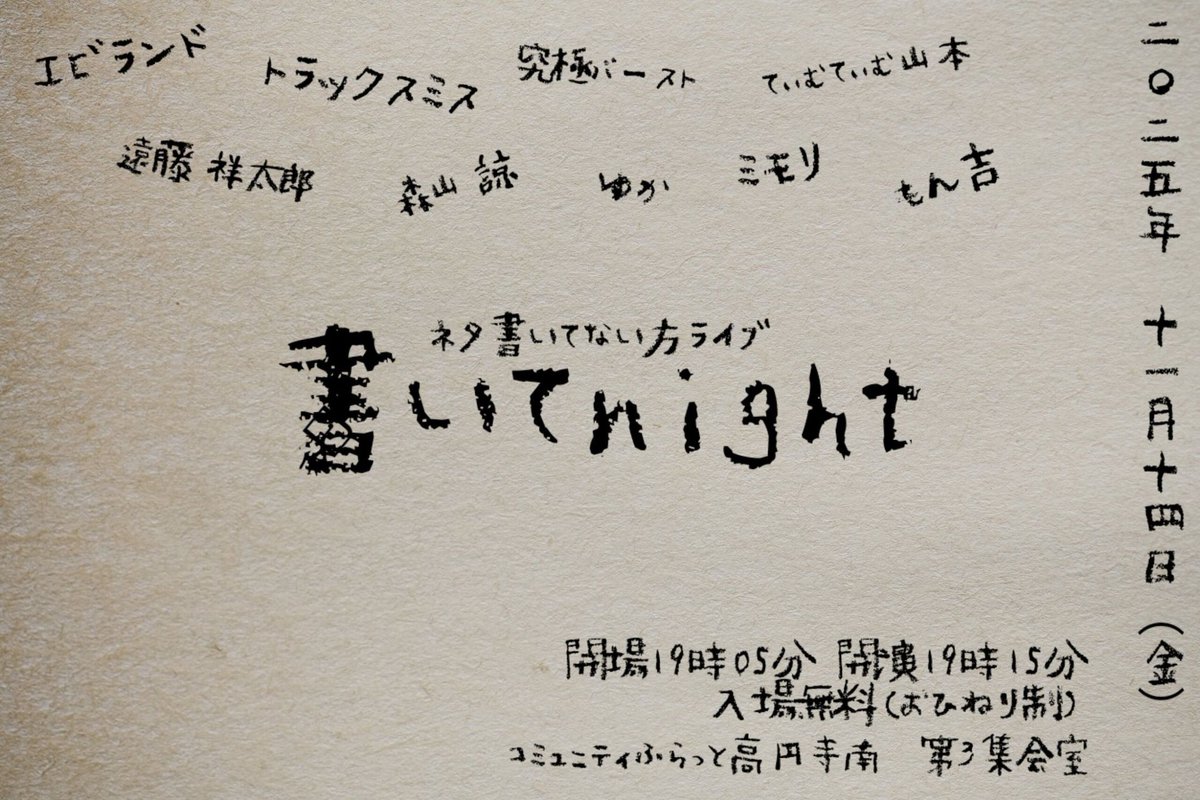 エビランド トラックスミス 究極バースト てぃむてぃむ山本
遠藤 祥太郎 森山 諒 ゆか ミモリ もん吉
ネタ書いてない方ライブ
書いてnight
二〇二五年 十一月十四日（金）
開場19時05分 開演19時15分
入場無料（おひねり制）
コミュニティふらっと高円寺南 第3集会室